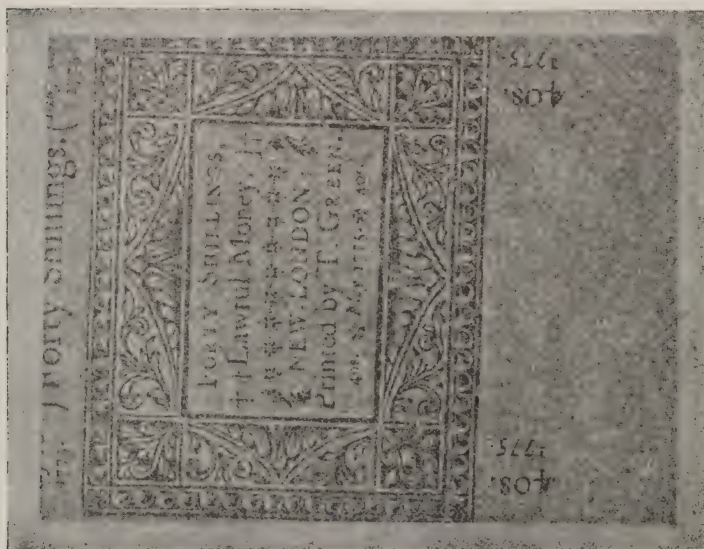 Forty Shillings. (
1775.
FORTY SHILLINGS,
Lawful Money.
NEW-LONDON:
Printed by T. GREEN.
40s. May 1775. 40s.
40s.
1775.
40s.
1775.